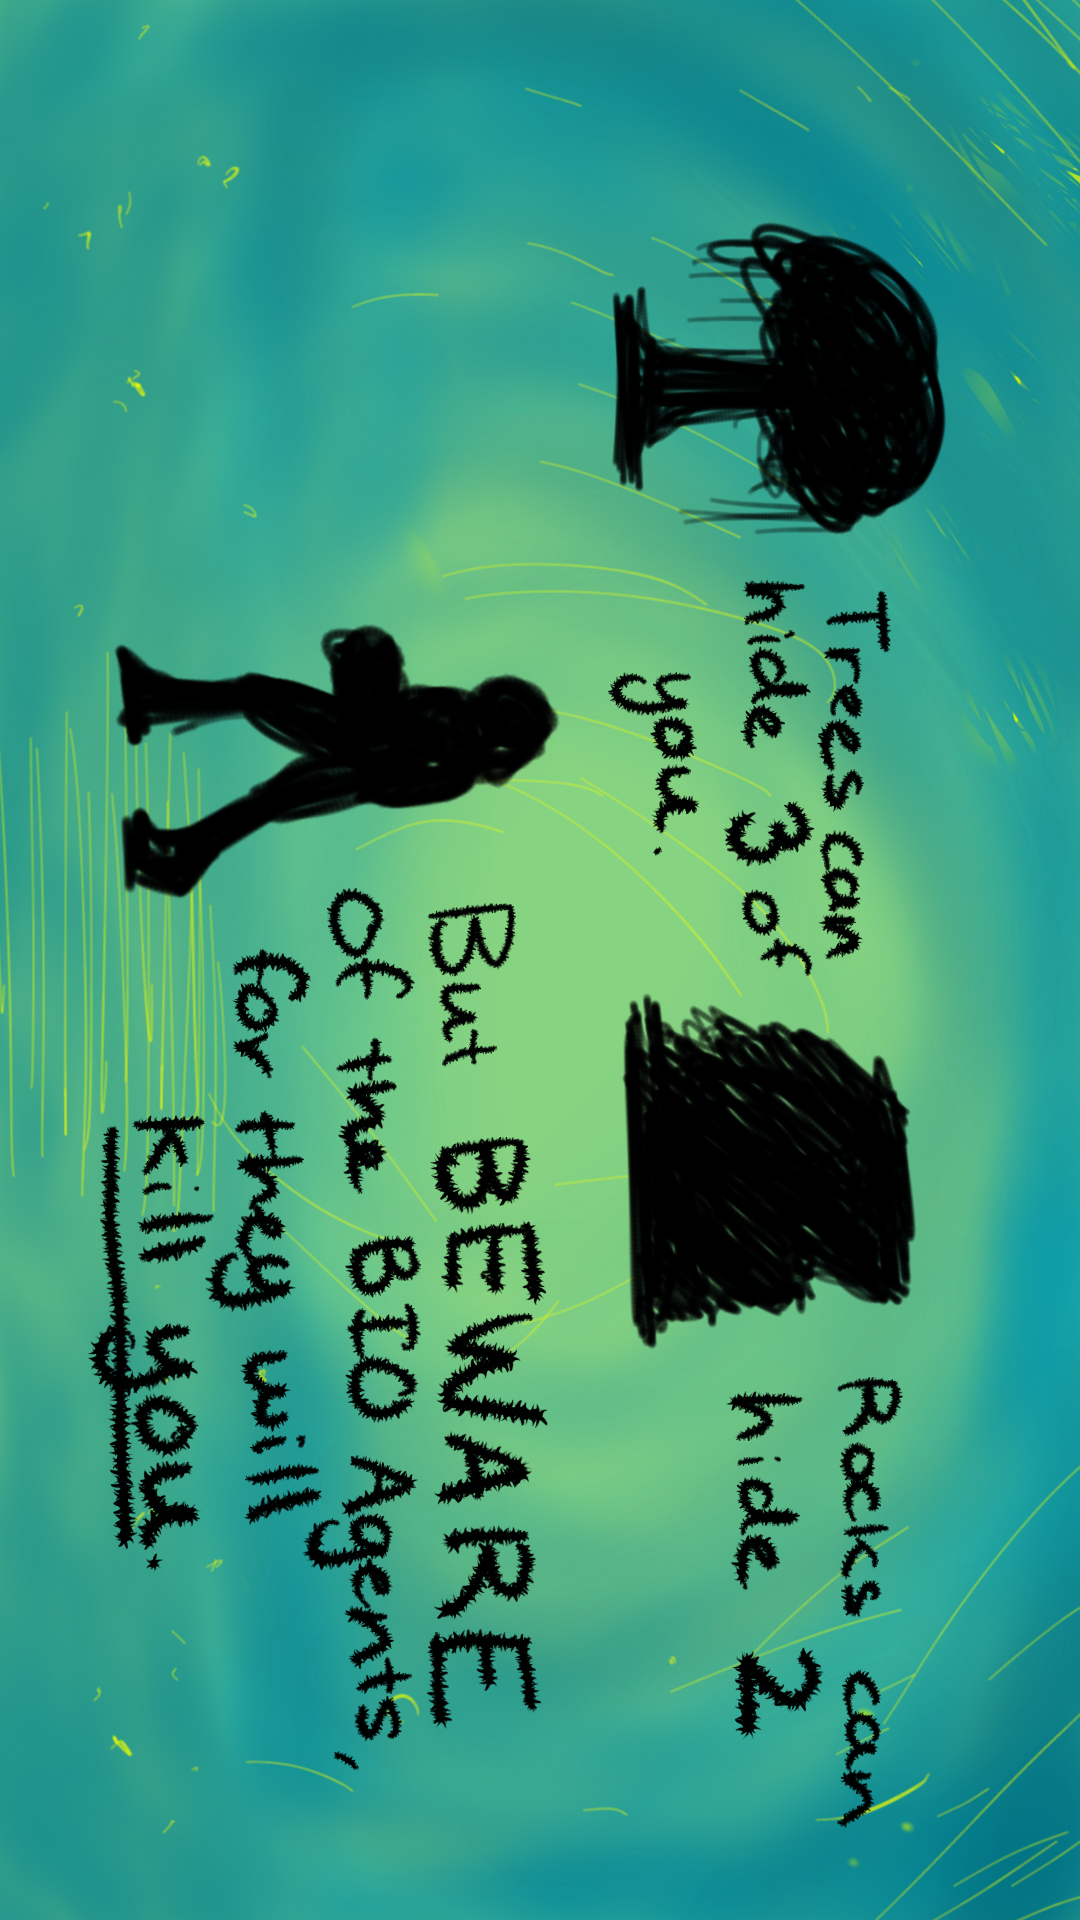 Trees can
hide 3 of
you.
Rocks can
hide 2
But BEWARE
Of the BIO Agents,
for they will
kill you.